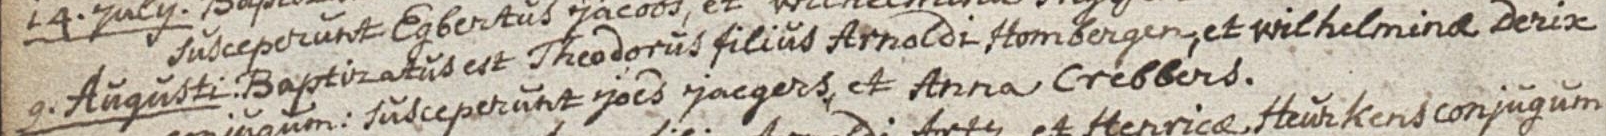 14. July.
susceperunt Egbertus Jacobs, et Wilhelmina
9. Augusti: Baptizatus est Theodorus filius Arnoldi Hombergen, et Wilhelminæ Derix
conjugum: susceperunt joēs jaegers, et Anna Crebbers.
et Henricæ Heurkens conjugum